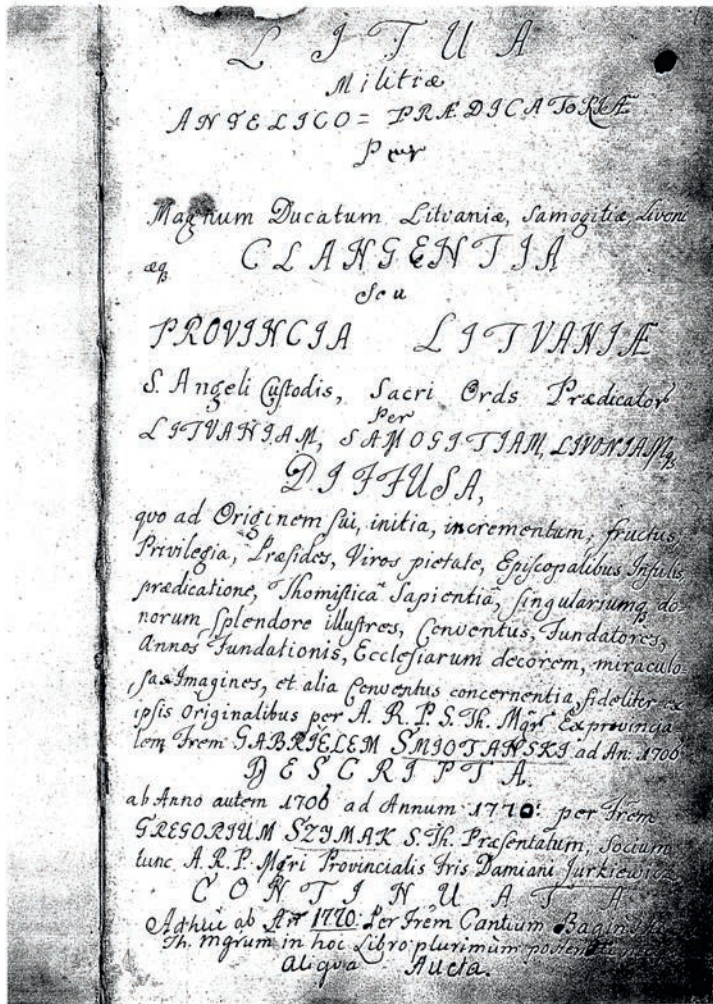 LITUA
Militiæ
ANGELICO = PRÆDICATORIÆ
Per
Magnum Ducatum Litvaniæ, Samogitiæ Livoni
æq₃ CLANGENTIA
Seu
PROVINCIA LITVANIÆ
S. Angeli Custodis, Sacri Ords Prædicator
Per
LITVANIAM, SAMOGITIAM, LIVONIAMq₃
DIFFUSA,
quo ad Originem sui, initia, incrementum, fructus,
Privilegia, Præsides, Viros pietate, Episcopalibus Insulis
prædicatione, Thomisticâ Sapientiâ, singulariumq₃ do-
norum splendore illustres, Conventus, Fundatores,
Annos Fundationis, Ecclesiarum decorem, miraculo-
sas Imagines, et alia Conventus concernentia, fideliter ex
ipsis Originalibus per A. R. P. S. Th. Mgr̃ Exprovincia
lem Frem GABRIELEM SMIOTANSKI ad An: 1706
DESCRIPTA.
ab Anno autem 1706 ad Annum 1770: per Frem
GREGORIUM SZYMAK S. Th. Præsentatum, Socium
tunc A. R. P. Mgri Provincialis Fris Damiani Jurkiewicz
CONTINUATA
Adhuc ab An 1770: Per Frem Cantium
Th. Mgrum in hoc Libro plurimum
aliqua Aucta.